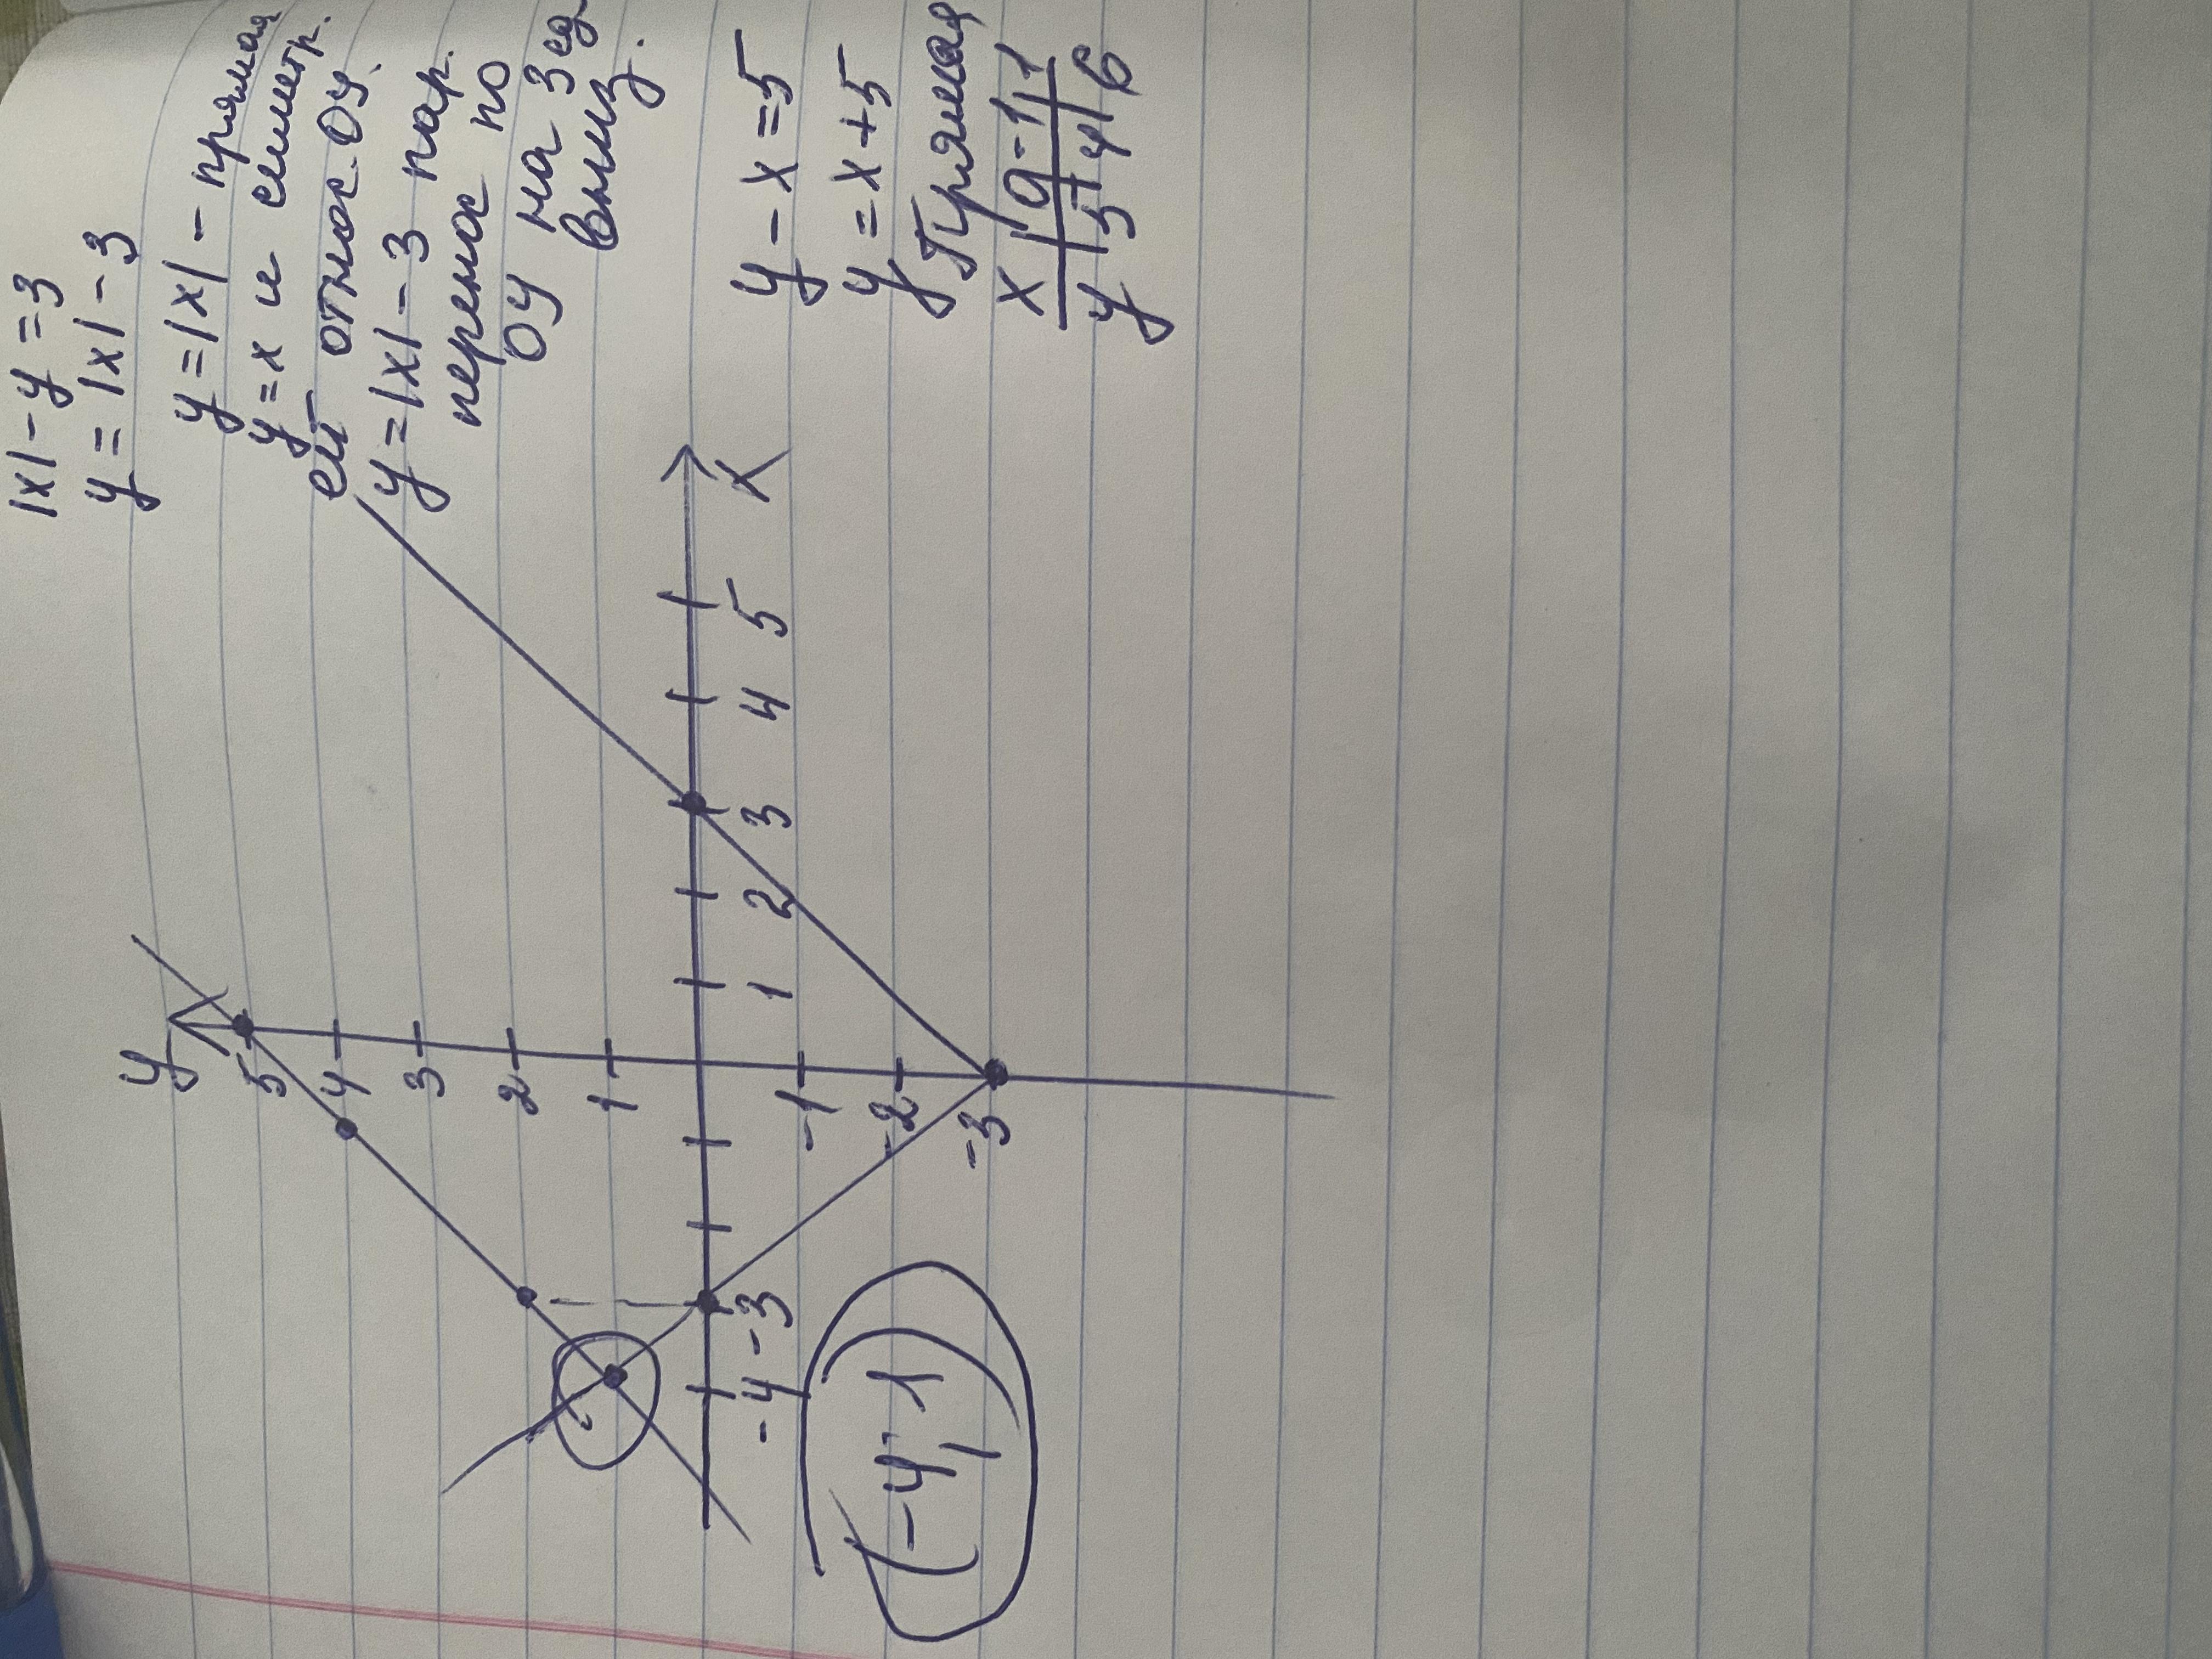 |x|-y=3
y=|x|-3
y=|x| - прямая
y=x и симметр.
ей относ. Оу.
y=|x|-3 пар.
перенос по
Оу на 3 ед
вниз.
y-x=5
y=x+5
Прямая
x | 0 | -1 | 1
y | 5 | 4 | 6
y
5
4
3
2
1
-1
-2
-3
-4 -3 1 2 3 4 5 X
(-4; 1)